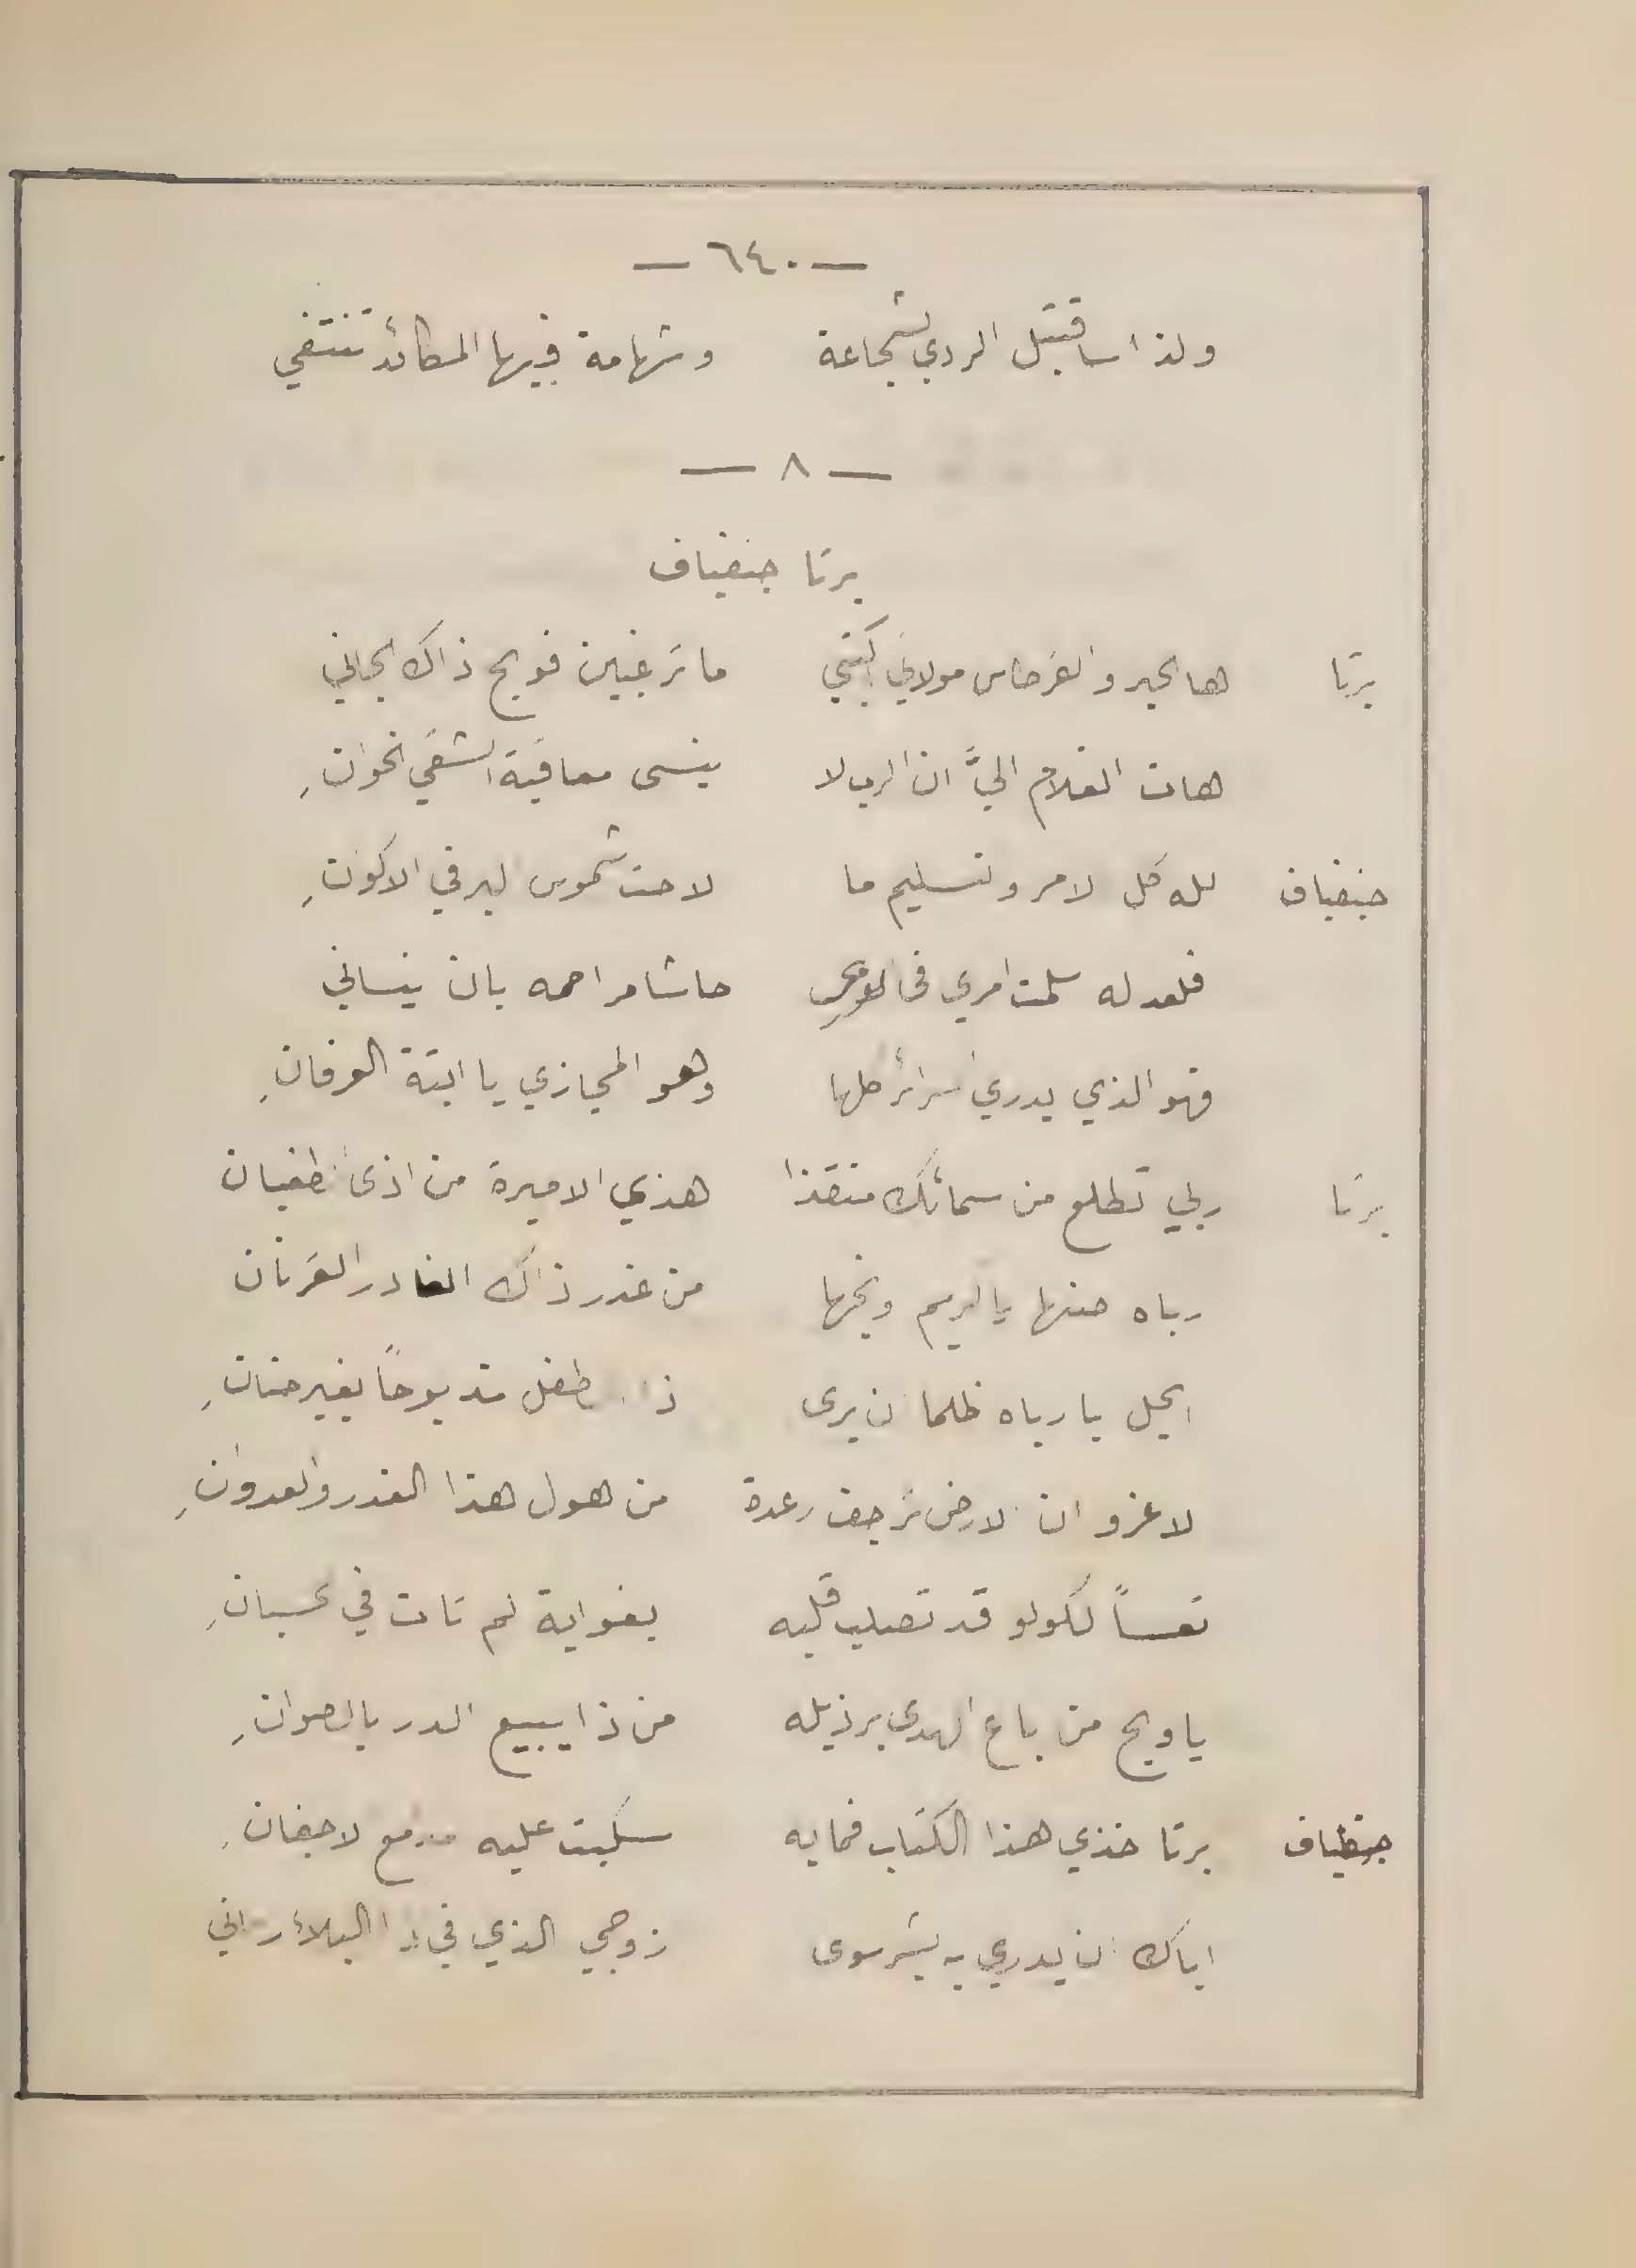 — ٦٤٠ —
ولذا ساقتبل الردي بشجاعة وشهامة فيها المكائد تنتفي
— ٨ —
برتا جنفياف
برتا ها الحبر والقرطاس مولاتي اكتبي ما ترغبين فويح ذاك الجاني
هات الغلام اليَّ ان الرب لا ينسى معاقبة الشقي الخوانِ
جنفياف لله كل الامر والتسليم ما لاحت شموس البر في الاكوانِ
فلقد له سلمت امري في حاشا مراحمه بان ينساني
فهو الذي يدري السرائر كلها وهو المجازي يا ابنة العرفانِ
برتا ربي تطلع من سمائك منقذا هذي الاميرة من اذى الطغيان
رباه صنها يا كريم ونجها من غدر ذاك الغادر القرنان
ايحل يا رباه ظلما ان يرى ذا الطفل مذبوحاً بغير حنانِ
لا غرو ان الارض ترجف رعدة من هول هذا الغدر والعدوانِ
تعساً لكولو قد تصلب قلبه بغواية لم تات في حسبانِ
يا ويح من باع الهدى برذيله من ذا يبيع الدر بالصوانِ
جنفياف برتا خذي هذا الكتاب فما به سكبت عليه مدمع الاجفانِ
اياك ان يدري به بشر سوى زوجي الذي في ذا البلاء رماني